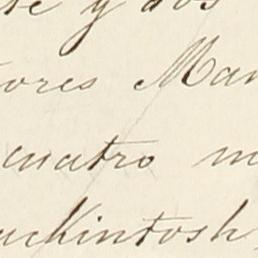 te y dos
tores Man
cuatro m
uckintosh